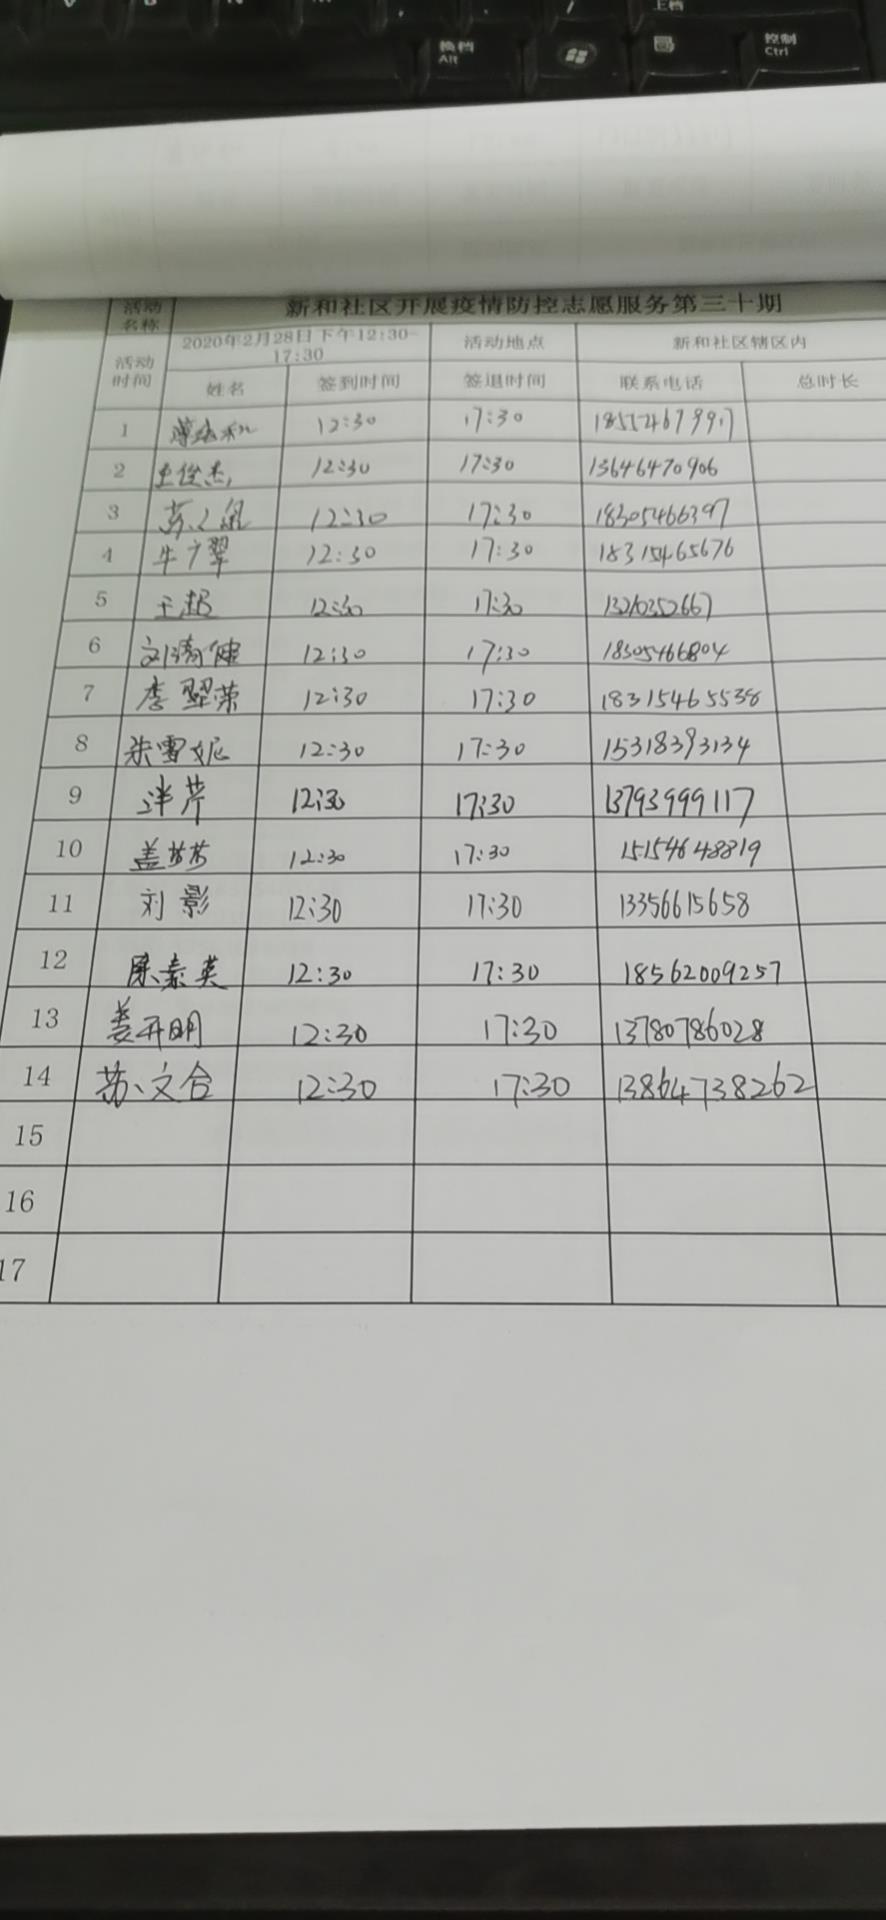 上档
换档
Alt
控制
Ctrl
活动名称 新和社区开展疫情防控志愿服务第三十期
活动时间 2020年2月28日下午12:30-17:30 活动地点 新和社区辖区内
姓名 签到时间 签退时间 联系电话 总时长
1 12:30 17:30
2 王俊杰 12:30 17:30 13646470906
3 12:30 17:30 18305466397
4 牛广翠 12:30 17:30 18315465676
5 王超 12:30 17:30
6 12:30 17:30 18305466804
7 李翠荣 12:30 17:30 18315465538
8 朱雪妮 12:30 17:30 15318393134
9 洋芹 12:30 17:30 13793999117
10 盖芳芳 12:30 17:30 15154648819
11 刘影 12:30 17:30 13356615658
12 陈素英 12:30 17:30 18562009257
13 姜开明 12:30 17:30 13780786028
14 苏文合 12:30 17:30 13864738262
15
16
17